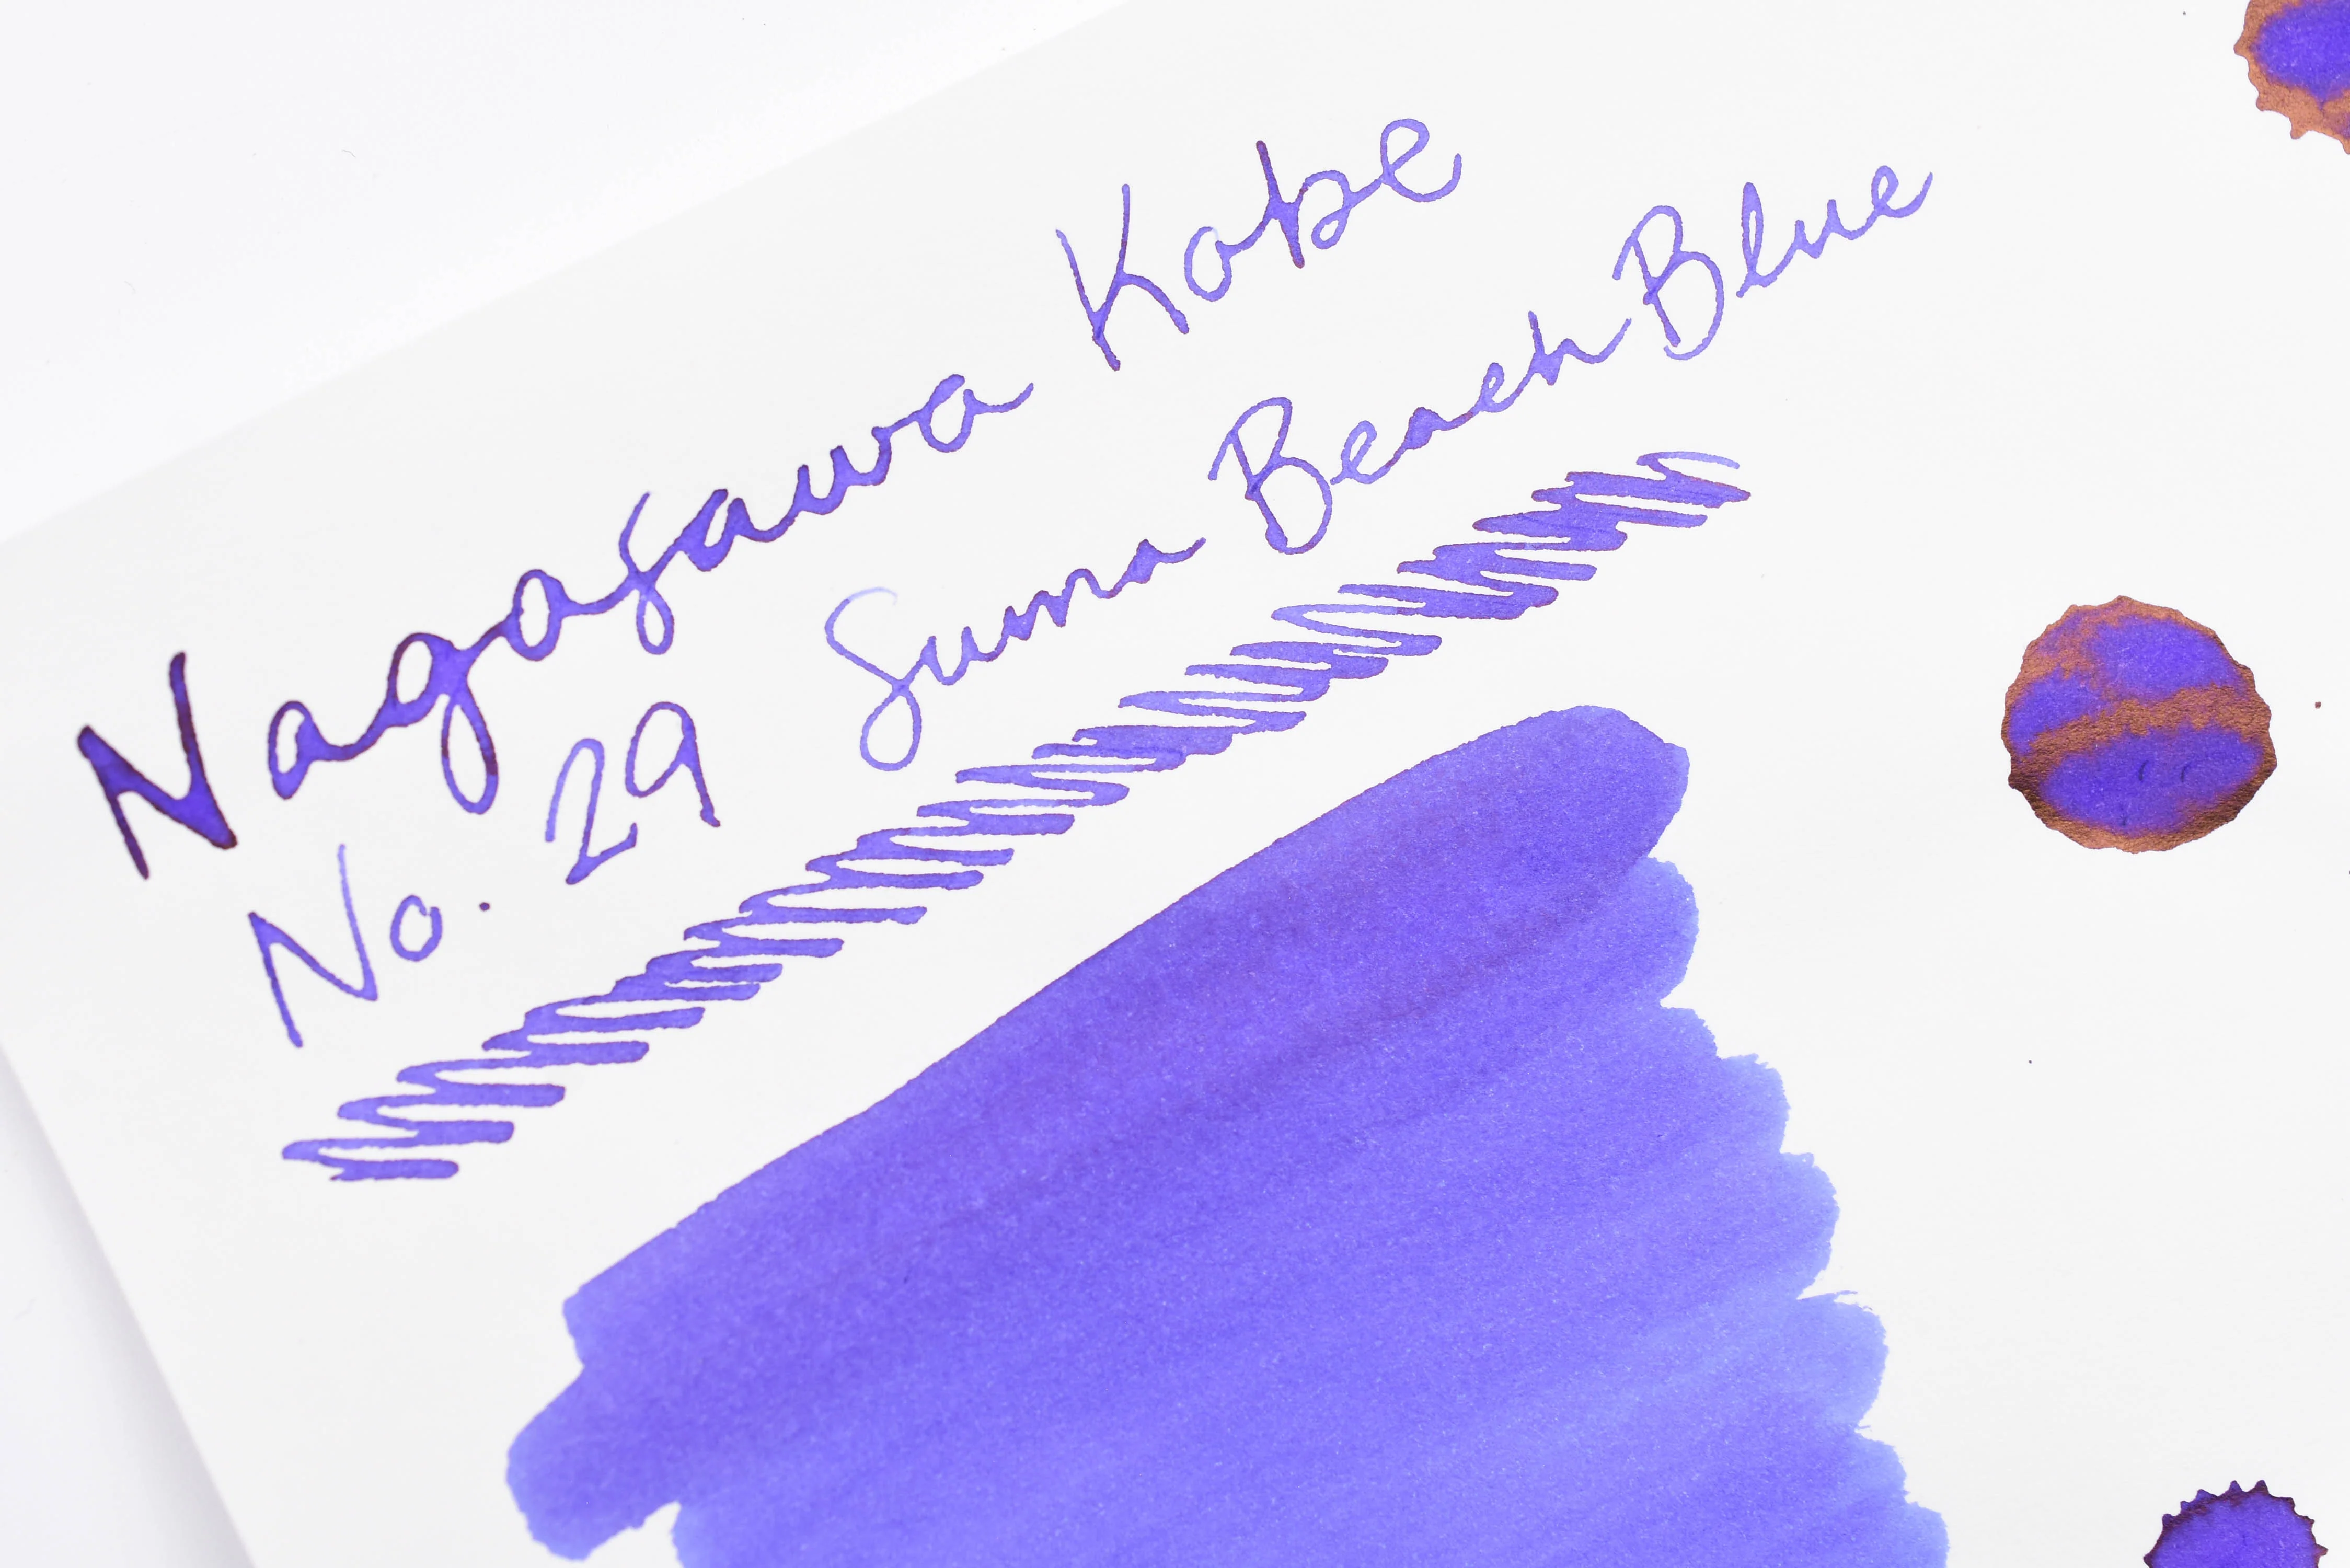 Nagasawa Kobe
No. 29 Suma Beach Blue